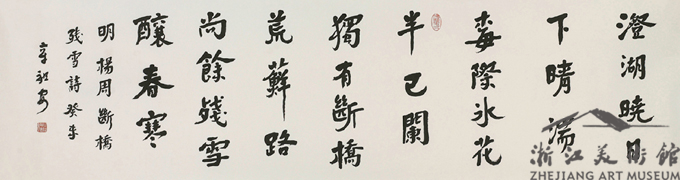 澄湖曉日
下晴湍
梅際冰花
半已闌
獨有斷橋
荒蘚路
尚餘殘雪
釀春寒
明楊周斷橋
殘雪詩癸未
章祖安
浙江美術館
ZHEJIANG ART MUSEUM